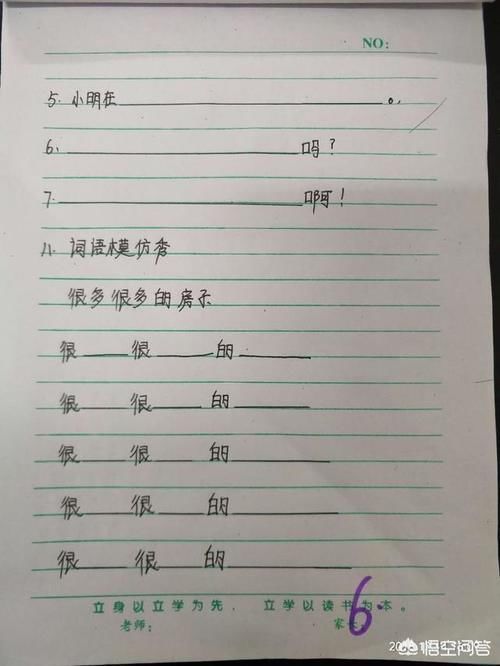 NO:
5. 小明在____________________。
6. ____________________吗?
7. ____________________啊!
八. 词语模仿秀
很多很多的房子
很____很____的____
很____很____的____
很____很____的____
很____很____的____
很____很____的____
立身以立学为先，立学以读书为本。
老师: 家长:
6
悟空问答